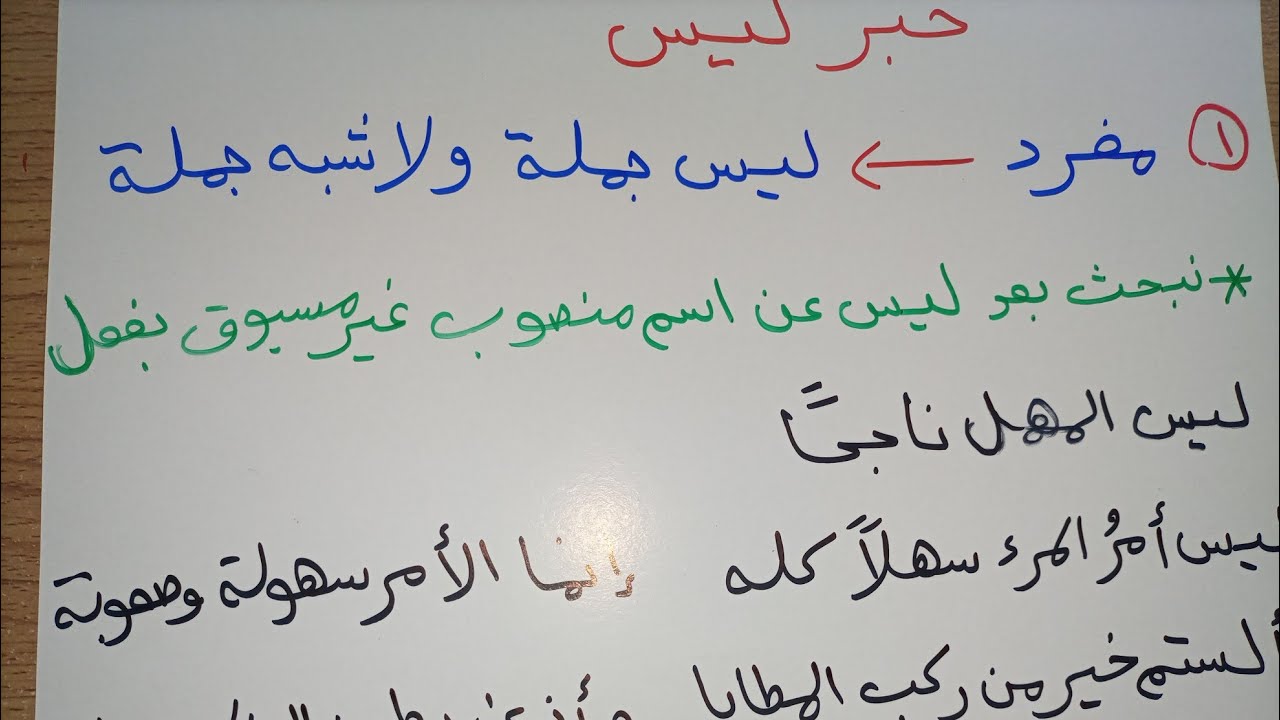 خبر ليس
١ مفرد ← ليس جملة ولا شبه جملة
* نبحث بعد ليس عن اسم منصوب غير مسبوق بفعل
ليس المهمل ناجحًا
ليس أمرُ المرء سهلاً كله إنما الأمر سهولة وصعوبة
ألستم خير من ركب المطايا